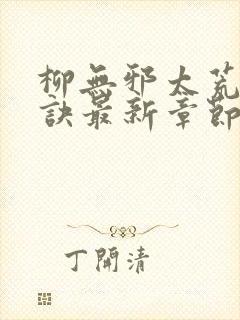 柳無邪太荒
訣最新章節
丁開清